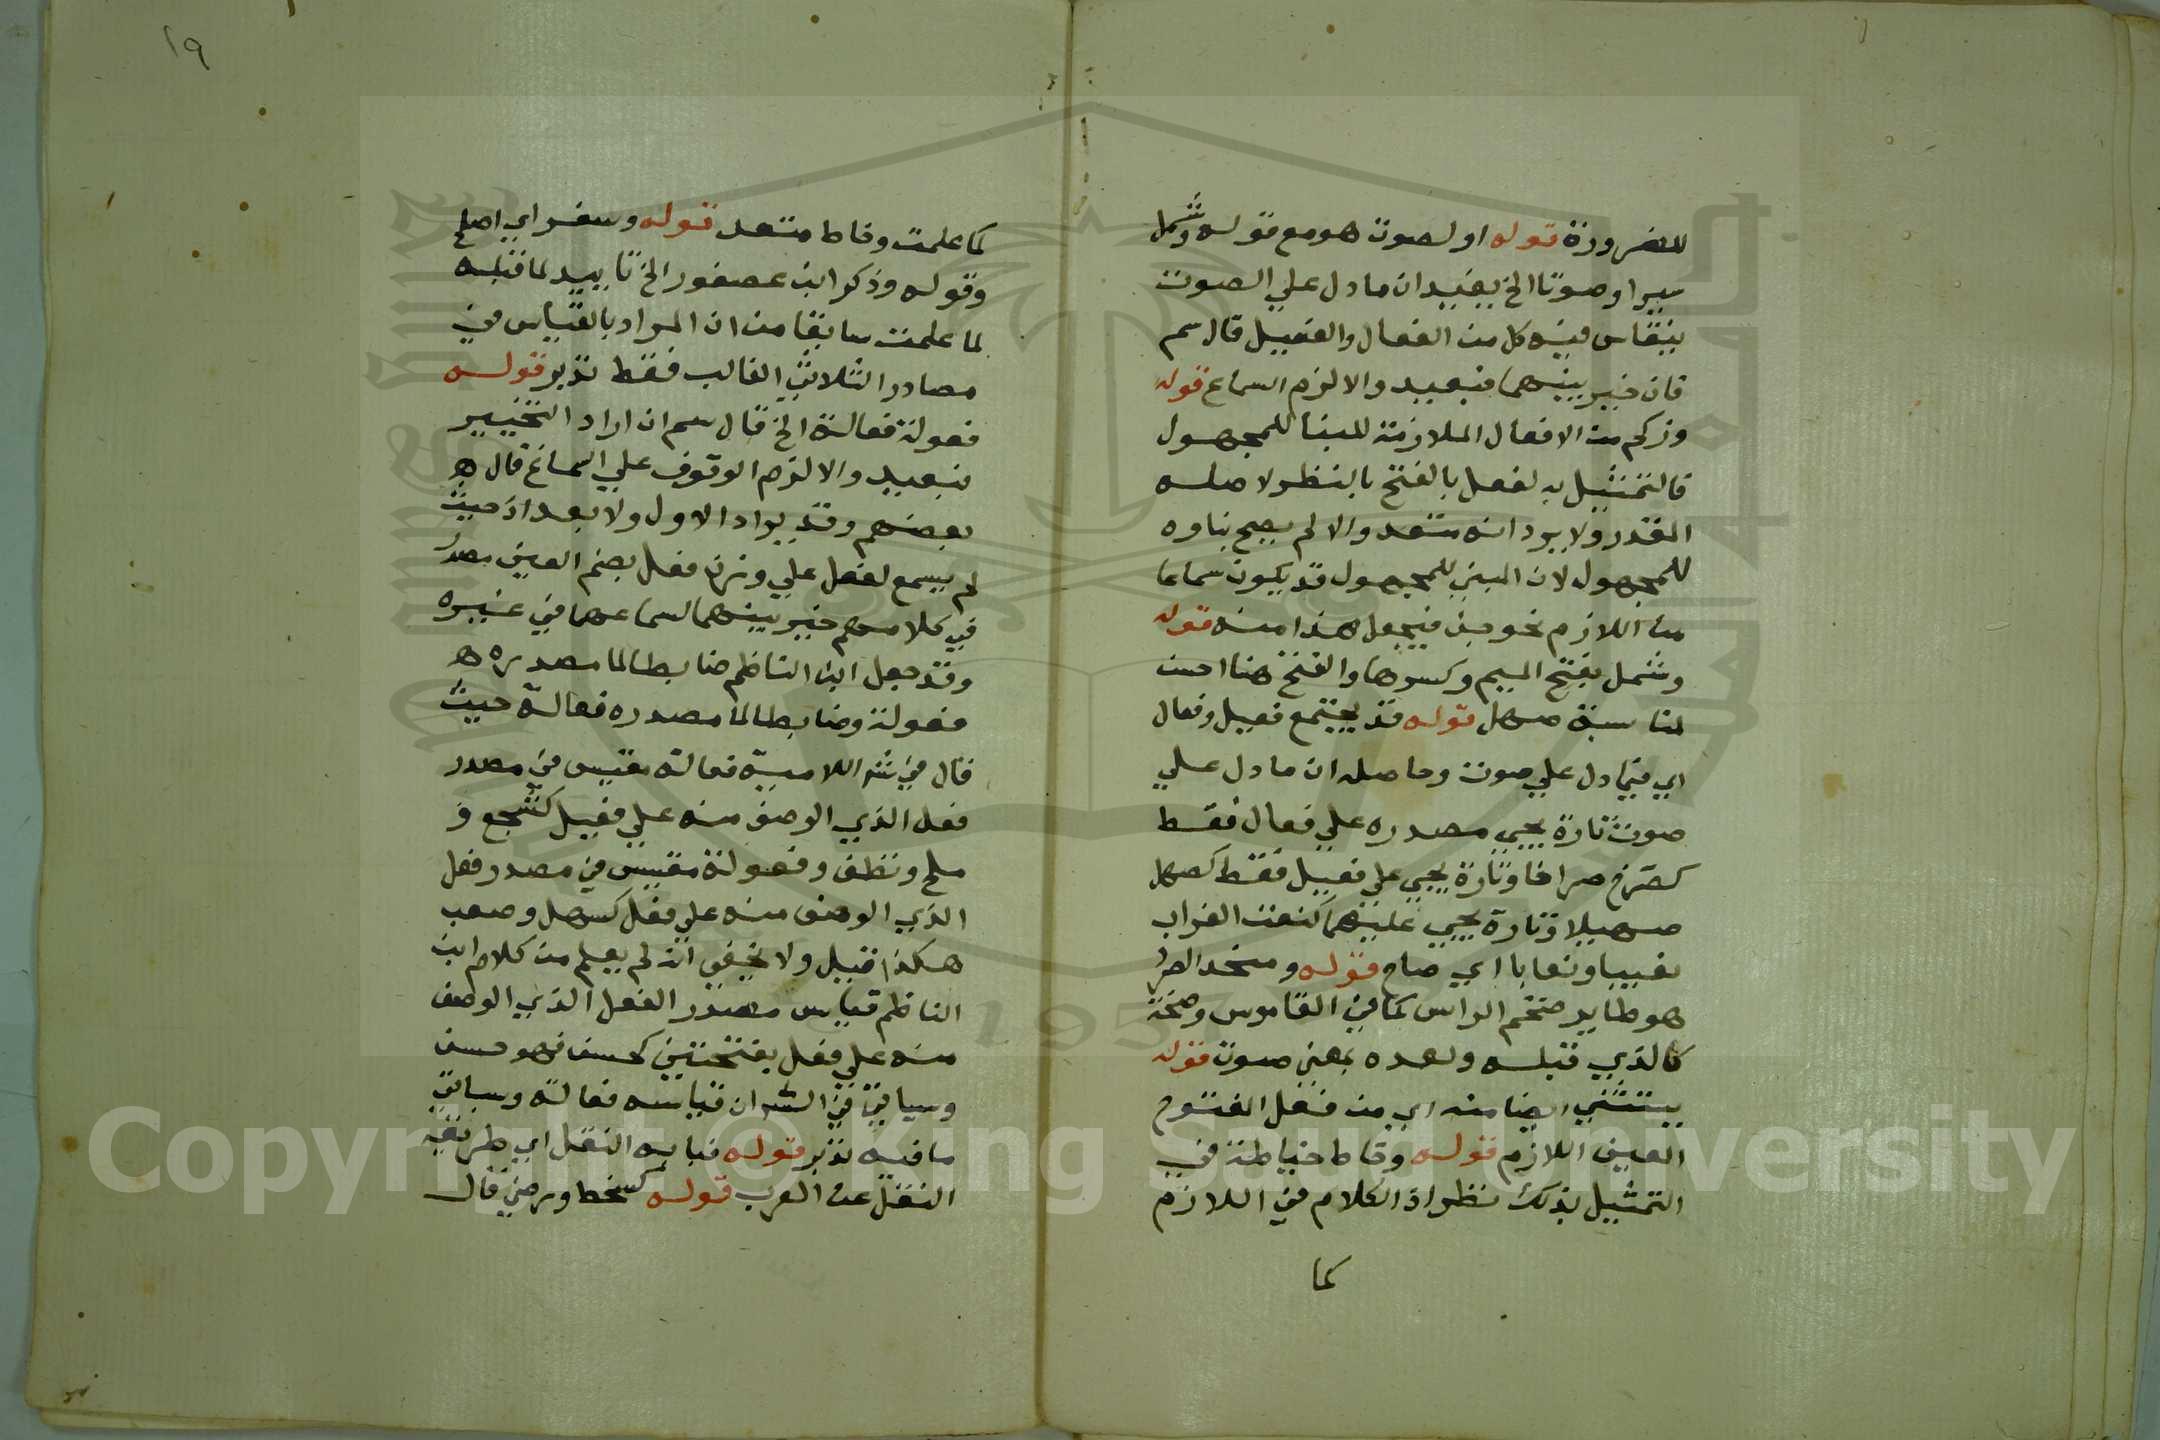 للضرورة قوله او لصوت هو مع قوله وشمل
سيرا وصوتا الخ يفيد ان ما دل علي الصوت
ينقاس فيه كل من الفعال والفعيل قال سم
فان خير بينهما فبعيد والا لزم السماع قوله
وزكم من الافعال الملازمة للبنا للمجهول
فالتمثيل به لفعل بالفتح بالنظر لاصله
المقدر ولا يرد انه متعد والا لم يصح بناوه
للمجهول لان المبني للمجهول قد يكون سماعا
من اللازم نحو جن فيجعل هذا منه قوله
وشمل بفتح الميم وكسرها والفتح هنا احسن
لمناسبة صهل قوله قد يجتمع فعيل وفعال
اي فيما دل علي صوت وحاصله ان ما دل علي
صوت تارة يجيي مصدره علي فعال فقط
كصرخ صراخا وتارة يجيي علي فعيل فقط كصهل
صهيلا وتارة يجيي عليهما كنعت الغراب
نعيبا ونعابا اي صاح قوله وصخد الصرد
هو طاير ضخم الراس كما في القاموس وصخد
كالذي قبله وبعده بمعني صوت قوله
يستثني ايضا منه اي من فعل المفتوح
العين اللازم قوله وخاط خياطة في
التمثيل بذلك نظر اذ الكلام في اللازم
كما
١٩
كما علمت وخاط متعد قوله وسفر اي اصلح
وقوله وذكر ابن عصفور الخ تاييد لما قبله
لما علمت سابقا من ان المراد بالقياس في
مصادر الثلاثي الغالب فقط تدبر قوله
فعولة فعالة الخ قال سم ان اراد التخيير
فبعيد والا لزم الوقوف علي السماع قال
بعضهم وقد يراد الاول ولا بعد اذ حيث
لم يسمع لفعل علي وزن فعل بضم العين مصدر
في كلامهم خير بينهما لسماعهما في غيره
وقد جعل ابن الناظم ضابطا لما مصدره
فعولة وضابطا لما مصدره فعالة حيث
قال في شر اللامية فعالة مقيس في مصدر
فعل الذي الوصف منه علي فعيل كشجع و
ملح ونظف وفعولة مقيس في مصدر فعل
الذي الوصف منه علي فعل كسهل وصعب
هكذا قيل ولا يخفي انه لم يعلم من كلام ابن
الناظم قياس مصدر الفعل الذي الوصف
منه علي فعل بفتحتين كحسن فهو حسن
وسياتي في الشر ان قياسه فعالة وسياتي
ما فيه تدبر قوله فبابه النقل اي طريقه
النقل عن العرب قوله كسخط ورضي قال